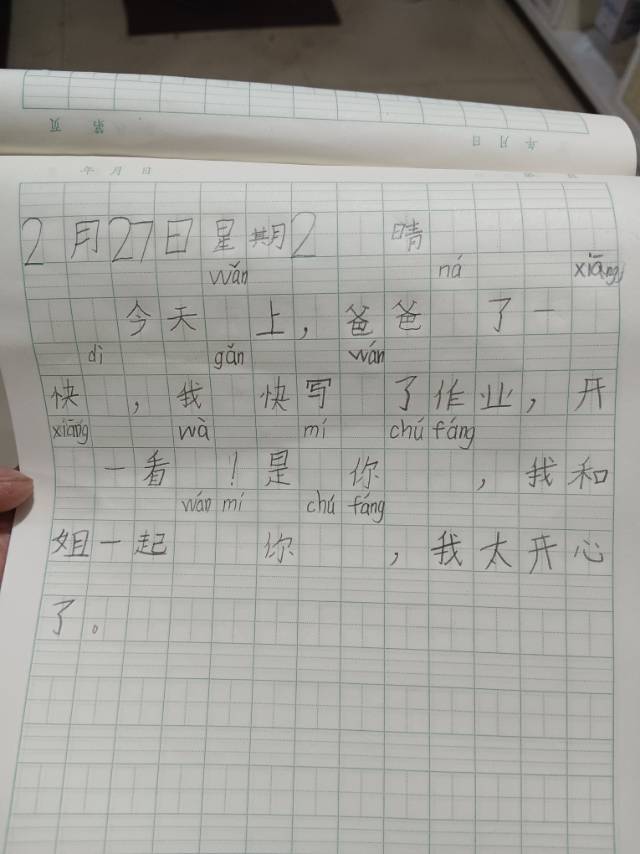 页 第 日 月 年
年 月 日
2月27日星期2 晴
wǎn ná xiāng
今天 上，爸爸 了一
dì gǎn wán
快 ，我 快写 了作业，开
xiāng wà mí chú fáng
一看 ！是 你 ，我和
wán mí chú fáng
姐一起 你 ，我太开心
了。